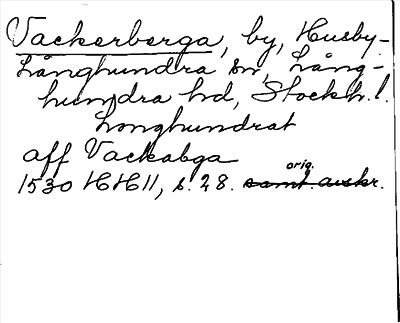 Vackerberga, by, Husby-
Långhundra sn, Lång-
hundra hd, Stockh. l.
Longhundrat
aff Vackabga
orig.
1530 HH II, s. 28. samt. avskr.